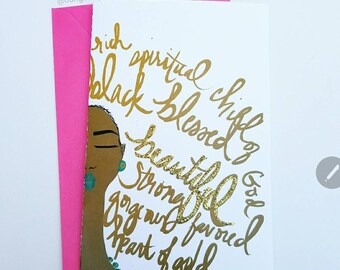 rich spiritual child of God
black blessed
beautiful
strong
gorgeous favored
heart of gold